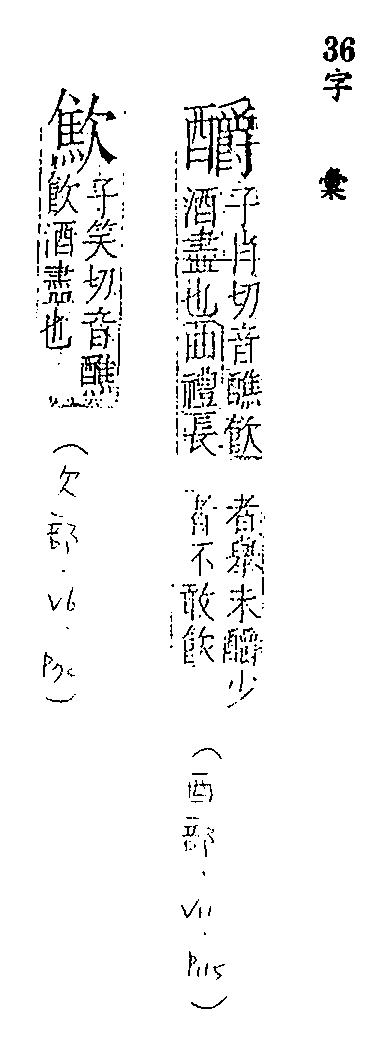 36字 彙
釂
子肖切音醮飲
酒盡也曲禮長
者舉未釂少
者不敢飲
(酉部.V11.P115)
子笑切音醮
飲酒盡也
(欠部.V6.